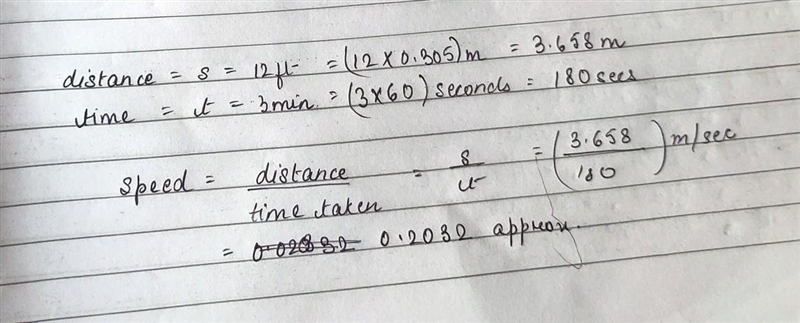 distance = s = 12 ft = (12 × 0.305) m = 3.658 m
time = t = 3 min = (3×60) seconds = 180 secs
speed = distance / time taken = s / t = (3.658 / 180) m/sec
= 0.2032 approx.